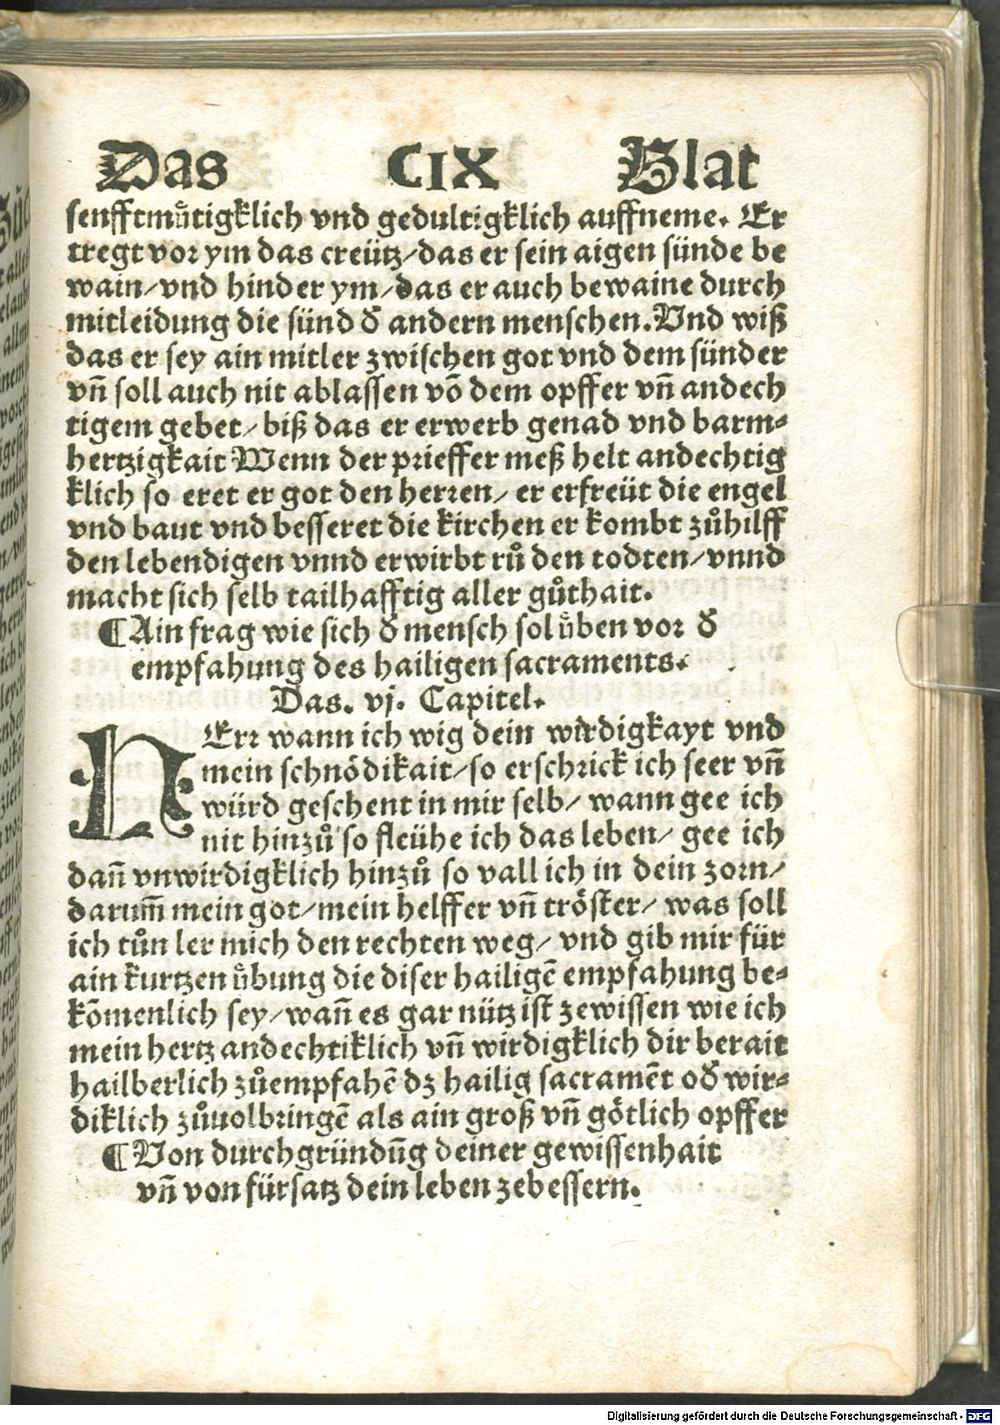 Das CIX Blat
senfftmuͤtigklich vnd gedultigklich auffneme. Er
tregt vor ym das creütz/das er sein aigen sünde be
wain/vnd hinder ym/das er auch bewaine durch
mitleidung die sünd ð andern menschen.Vnd wiß
das er sey ain mitler zwischen got vnd dem sünder
vñ soll auch nit ablassen võ dem opffer vñ andech
tigem gebet/ biß das er erwerb genad vnd barm⸗
hertzigkait Wenn der prieffer meß helt andechtig
klich so eret er got den herren/ er erfreüt die engel
vnd baut vnd besseret die kirchen er kombt zůhilff
den lebendigen vnnd erwirbt rů den todten/vnnd
macht sich selb tailhafftig aller gůthait.
¶Ain frag wie sich ð mensch sol uͤben vor ð
empfahung des hailigen sacraments.
Das. vj. Capitel.
HErr wann ich wig dein wirdigkayt vnd
mein schnödikait/so erschrick ich seer vñ
würd geschent in mir selb/ wann gee ich
nit hinzů so fleühe ich das leben/ gee ich
dañ vnwirdigklich hinzů so vall ich in dein zorn/
darum̃ mein got/mein helffer vñ tröster/ was soll
ich tůn ler mich den rechten weg/ vnd gib mir für
ain kurtzen uͤbung die diser hailigẽ empfahung be⸗
kõmenlich sey/wañ es gar nütz ist zewissen wie ich
mein hertz andechtiklich vñ wirdigklich dir berait
hailberlich zůempfahẽ dz hailig sacramẽt oð wir⸗
diklich zůuolbringẽ als ain groß vñ götlich opffer
¶Von durchgründũg deiner gewissenhait
vñ von fürsatz dein leben zebessern.
Digitalisierung gefördert durch die Deutsche Forschungsgemeinschaft - DFG